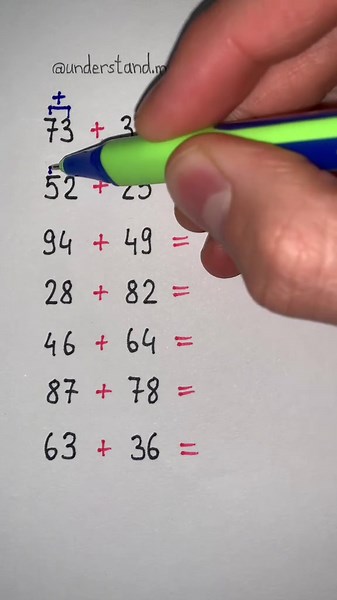 @understand.m
+
73 + 3
52 + 25
94 + 49 =
28 + 82 =
46 + 64 =
87 + 78 =
63 + 36 =